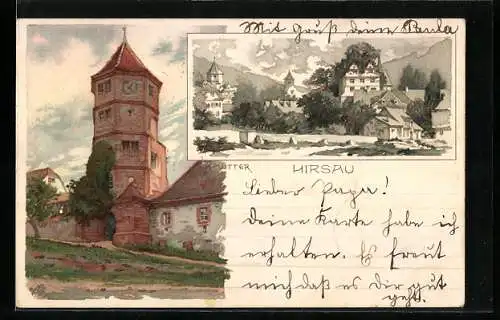 Mit Gruß deine Paula
HIRSAU
Lieber Papa!
Deine Karte habe ich
erhalten. Es freut
mich daß es Dir gut
geht.